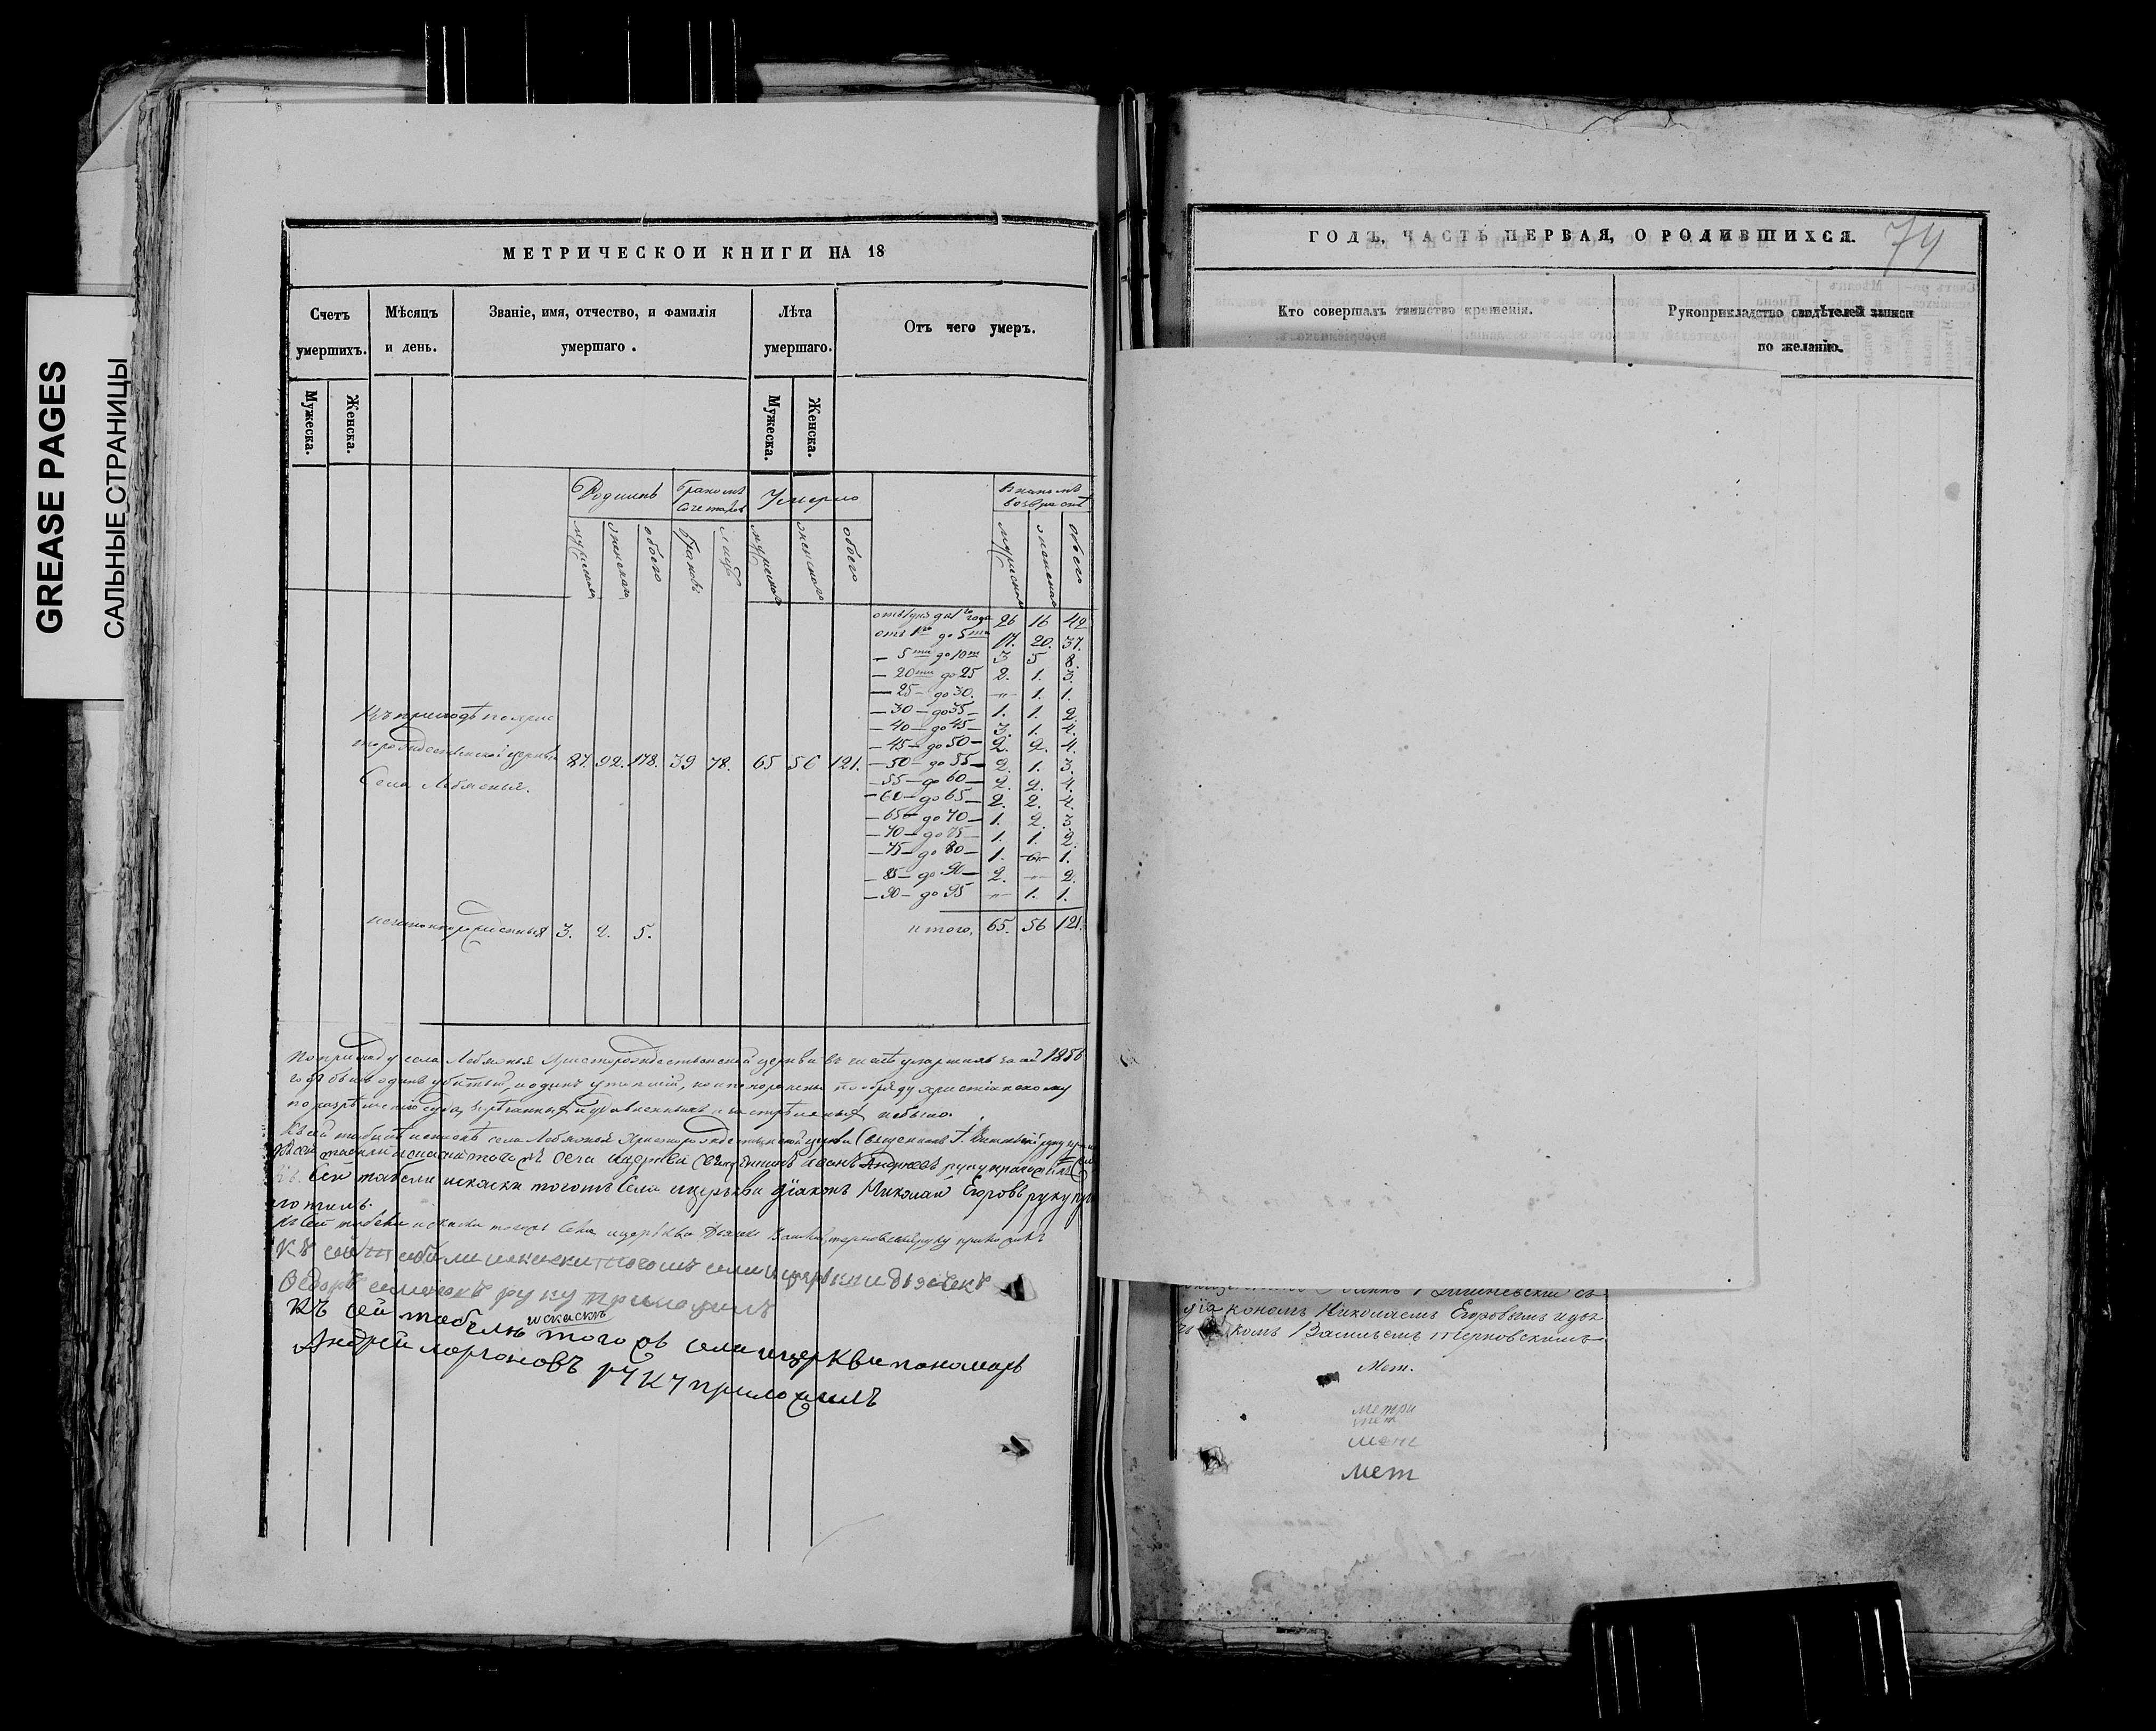 GREASE PAGES
САЛЬНЫЕ СТРАНИЦЫ
МЕТРИЧЕСКОЙ КНИГИ НА 18
Счетъ умершихъ.
Мѣсяцъ и день.
Званіе, имя, отчество, и фамилія умершаго.
Лѣта умершаго.
Отъ чего умеръ.
Мужеска.
Женска.
Мужеска.
Женска.
Родилось
Бракомъ сочеталось
Умерло
В какомъ возрастѣ
мужеска
женскаго
обоего
браковъ
лицъ
мужескаго
женскаго
обоего
мужеска
женска
обоего
отъ до 1го года 26 16 42
отъ 1го до 5ти 17. 20. 37.
— 5ти до 10ти 3 5 8.
— 20ти до 25 2. 1. 3.
— 25 — до 30. —"— 1. 1.
— 30 — до 35 — 1. 1. 2.
— 40 — до 45 — 3. 1. 4.
— 45 — до 50 — 2. 2. 4.
— 50 — до 55 — 2. 1. 3.
— 55 — до 60 — 2. 2. 4.
— 60 — до 65 — 2. 2. 4.
— 65 — до 70 — 1. 2. 3.
— 70 — до 75 — 1. 1. 2.
— 75 — до 80 — 1. —"— 1.
— 85 — до 90 — 2. —"— 2.
— 90 — до 95 —"— 1. 1.
Въ приходѣ по Хрис
торождественской церкви 87. 92. 178. 39 78. 65 56 121.
Села Лебяжья.
незаконнорожденныхъ 3. 2. 5.
итого, 65. 56 121.
По приходу села Лебяжья Христорождественской церкви въ числѣ умершихъ за 1856
годъ былъ одинъ убитый, и одинъ утопшій, кои похоронены по обряду христіанскому
по разрѣшенію суда, и удавленныхъ и застрѣленыхъ небыло.
Къ сей табели и сказкѣ села Лебяжья Христорождественской церкви Священникъ І. руку
Къ сей табели и сказки тогожъ села и церкви священникъ Иоанъ Андреевъ руку приложилъ
Къ сей табели и сказки тогожъ Села и церкви діаконъ Николай Егоровъ руку при
ложилъ.
Къ сей табели и сказки тогожъ Села и церкви Дьячекъ Василій терновскій руку приложилъ
Къ сей табели и сказки тогожъ села и церкви дьячекъ
Ѳедоръ руку приложилъ
Къ сей табелю и сказкѣ тогожъ села и церкви пономарь
Андрей ларионовъ руку приложилъ
ГОДЪ, ЧАСТЬ ПЕРВАЯ, О РОДИВШИХСЯ.
74
Кто совершалъ таинство крещенія.
Рукоприкладство свидѣтелей записи по желанію.
діакономъ Николаемъ Егоровымъ и дья
чкомъ Васильемъ терновскимъ
Мет.
метри
мет
мет
мет